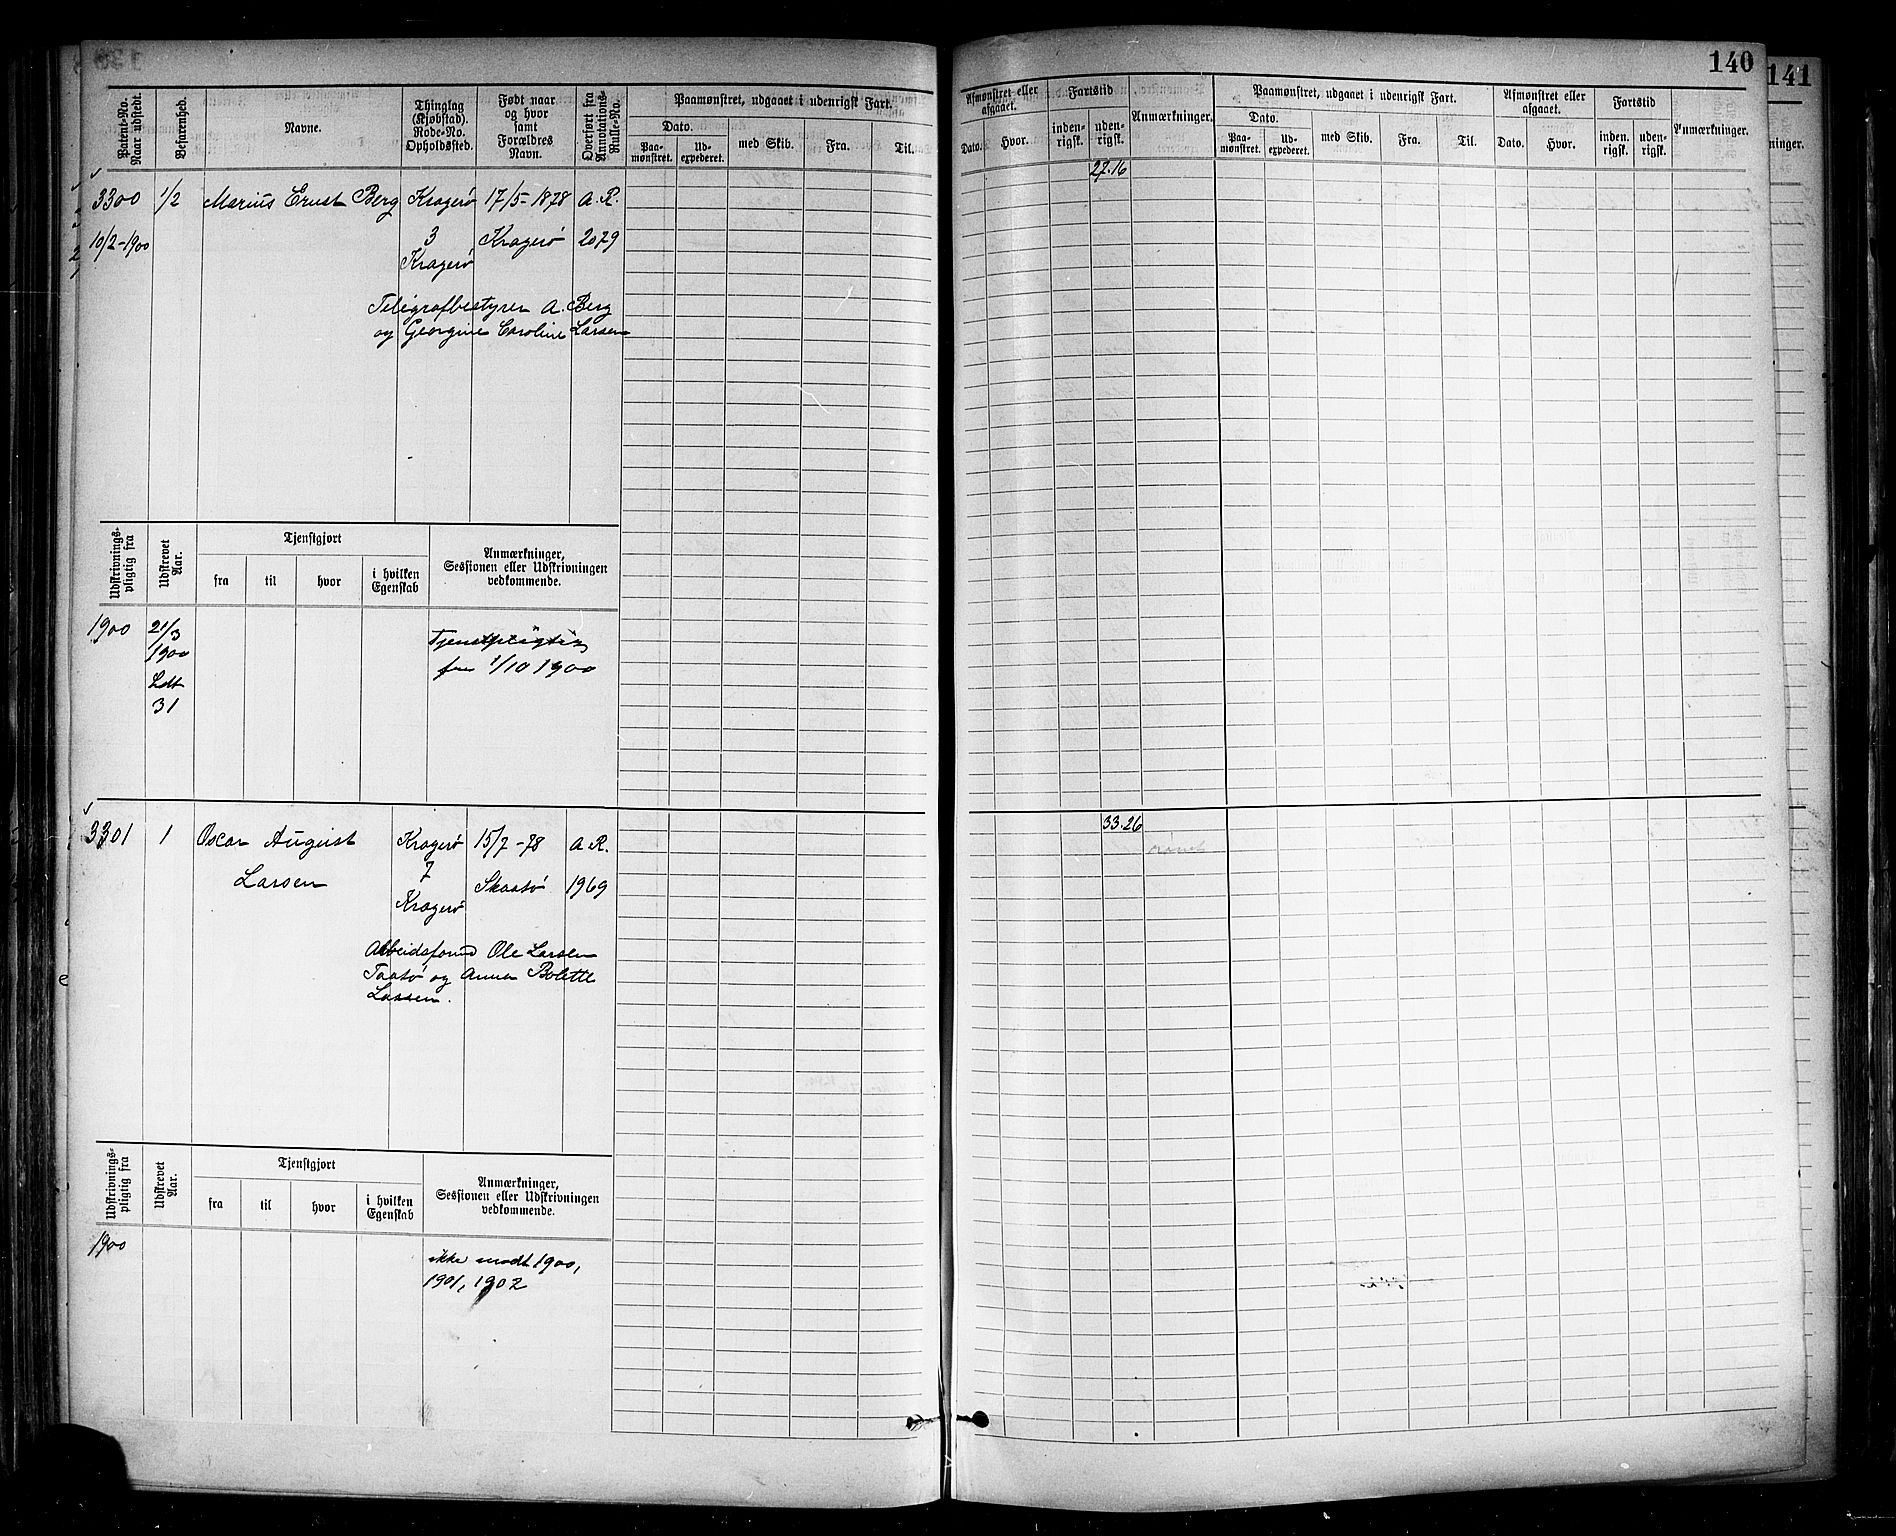 140
141
Patent-No. Naar udstedt.
Befarenhed.
Navne.
Thinglag (Kjøbstad). Rode-No. Opholdssted.
Født naar og hvor samt Forældres Navn.
Overført fra Annotations-Rulle-No.
Paamønstret, udgaaet i udenrigsk Fart.
Dato.
Paa-mønstret.
Ud-expederet.
med Skib.
Fra.
Til.
Afmønstret eller afgaaet.
Dato.
Hvor.
Fartstid
inden-rigsk.
uden-rigsk.
Anmærkninger.
Paamønstret, udgaaet i udenrigsk Fart.
Dato.
Paa-mønstret.
Ud-expederet.
med Skib.
Fra.
Til.
Afmønstret eller afgaaet.
Dato.
Hvor.
Fartstid
inden-rigsk.
uden-rigsk.
Anmærkninger.
ninger.
27.16
3300 1/2 Marius Ernst Berg Kragerø 17/5-1878 A.R.
10/2-1900 3 Kragerø 2079
Kragerø
Telegrafbestyrer A. Berg
og Georgine Caroline Larsen
Udskrivnings-pligtig fra
Udskrevet Aar.
Tjenstgjort
fra
til
hvor
i hvilken Egenskab
Anmærkninger,
Sessionen eller Udskrivningen
vedkommende.
1900 21/3
1900
Ldt
31
Tjenstpligtig
fra 1/10 1900
33.26
3301 1 Oscar August Kragerø 15/7-78 A.R.
Larsen 7 Skaatø 1969
Kragerø
Arbeidsform Ole Larsen
Taatø og Anna Bolette
Larsen.
Udskrivnings-pligtig fra
Udskrevet Aar.
Tjenstgjort
fra
til
hvor
i hvilken Egenskab
Anmærkninger,
Sessionen eller Udskrivningen
vedkommende.
1900
ikke mødt 1900,
1901, 1902